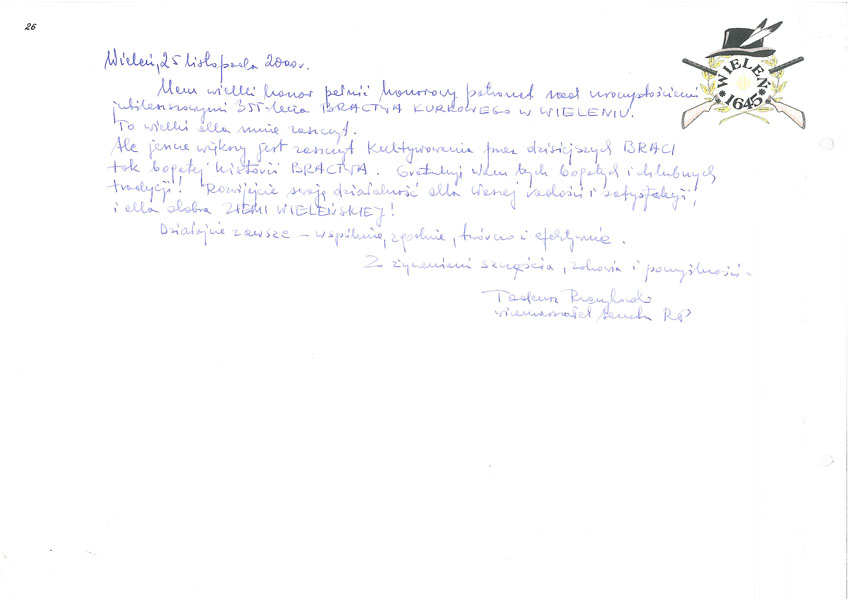 26
WIELEŃ
1645
Wieleń, 25 listopada 2000 r.
Mam wielki honor pełnić honorowy patronat nad uroczystościami
jubileuszowymi 355-lecia BRACTWA KURKOWEGO w WIELENIU.
To wielki dla mnie zaszczyt.
Ale jeszcze większy jest zaszczyt kultywowania przez dzisiejszych BRACI
tak bogatej historii BRACTWA. Gratuluję Wam tych bogatych i chlubnych
tradycji! Rozwijajcie swoją działalność dla Waszej radości i satysfakcji,
i dla dobra ZIEMI WIELEŃSKIEJ!
Działajcie zawsze – wspólnie, zgodnie, twórczo i efektywnie.
Z życzeniami szczęścia, zdrowia i pomyślności –
Tadeusz Rzemykowski
wicemarszałek Senatu RP